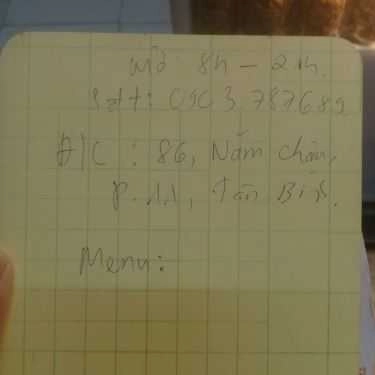 Mở: 8h – 2h.
Sđt: 0903.787689
Đ/C: 86, Năm Châu,
P.11, Tân Bình.
Menu: